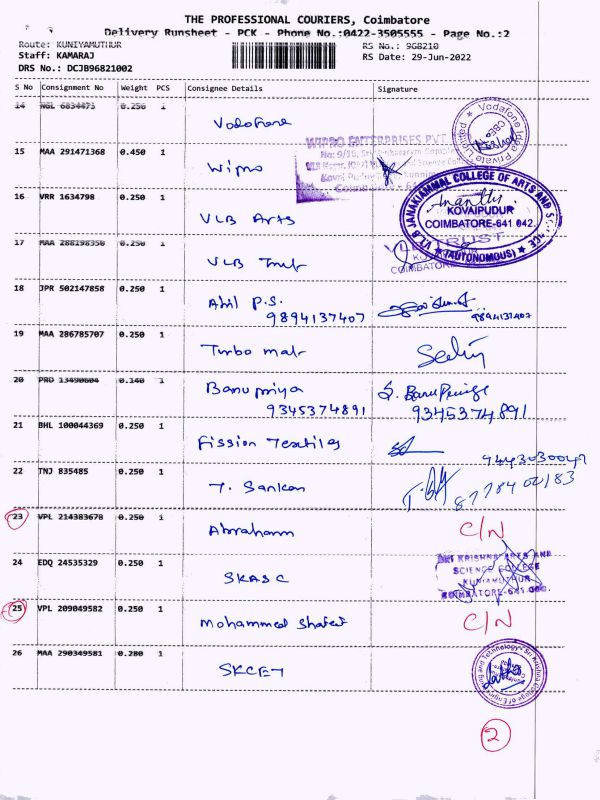 THE PROFESSIONAL COURIERS, Coimbatore
Delivery Runsheet - PCK - Phone No.:0422-3505555 - Page No.:2
Route: KUNIYAMUTHUR
Staff: KAMARAJ
DRS No.: DCJB96821002
RS No.: 968210
RS Date: 29-Jun-2022
S No Consignment No Weight PCS Consignee Details Signature
14 NGL 6834473 0.250 1 Vodafone
Vodafone Idea Private Limited
15 MAA 291471368 0.450 1 Wipro
WIPRO ENTERPRISES PVT
16 VRR 1634798 0.250 1 VLB Arts
VLB JANAKIAMMAL COLLEGE OF ARTS AND
Ananthi
KOVAIPUDUR
COIMBATORE-641 042.
(AUTONOMOUS)
17 MAA 288198350 0.250 1 VLB Trust
TRUST
COIMBATORE
18 JPR 502147858 0.250 1 Akil P.S.
9894137407 9894137407
19 MAA 286785707 0.250 1 Turbo mat
20 PRD 13490604 0.140 1 Banupriya
9345374891 9345374891
21 BHL 100044369 0.250 1 Fission Textiles
22 TNJ 835485 0.250 1 T. Sankar
23 VPL 214383678 0.250 1 Abraham C/N
24 EDQ 24535329 0.250 1 SKASC
SRI KRISHNA ARTS AND
SCIENCE COLLEGE
KUNIAMUTHUR
COIMBATORE-641 008.
25 VPL 209049582 0.250 1 Mohammed C/N
26 MAA 290349581 0.280 1 SKCET
Sri Krishna College of Engg and Technology
2